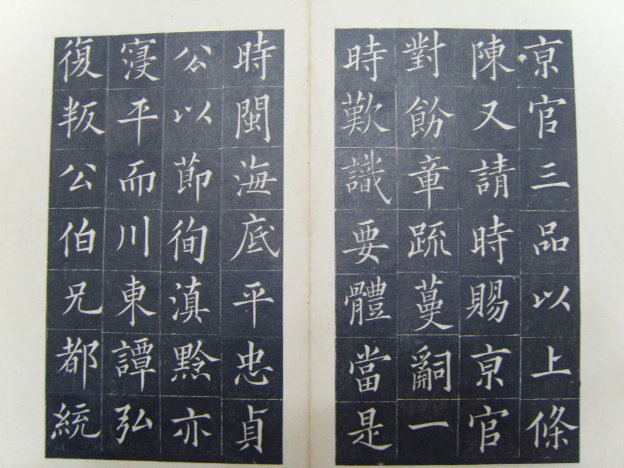 京官三品以上條
陳又請時賜京官
對飭章疏蔓辭一
時歎識要體當是
時閩海底平忠貞
公以節徇滇黔亦
寖平而川東譚弘
復叛公伯兄都統